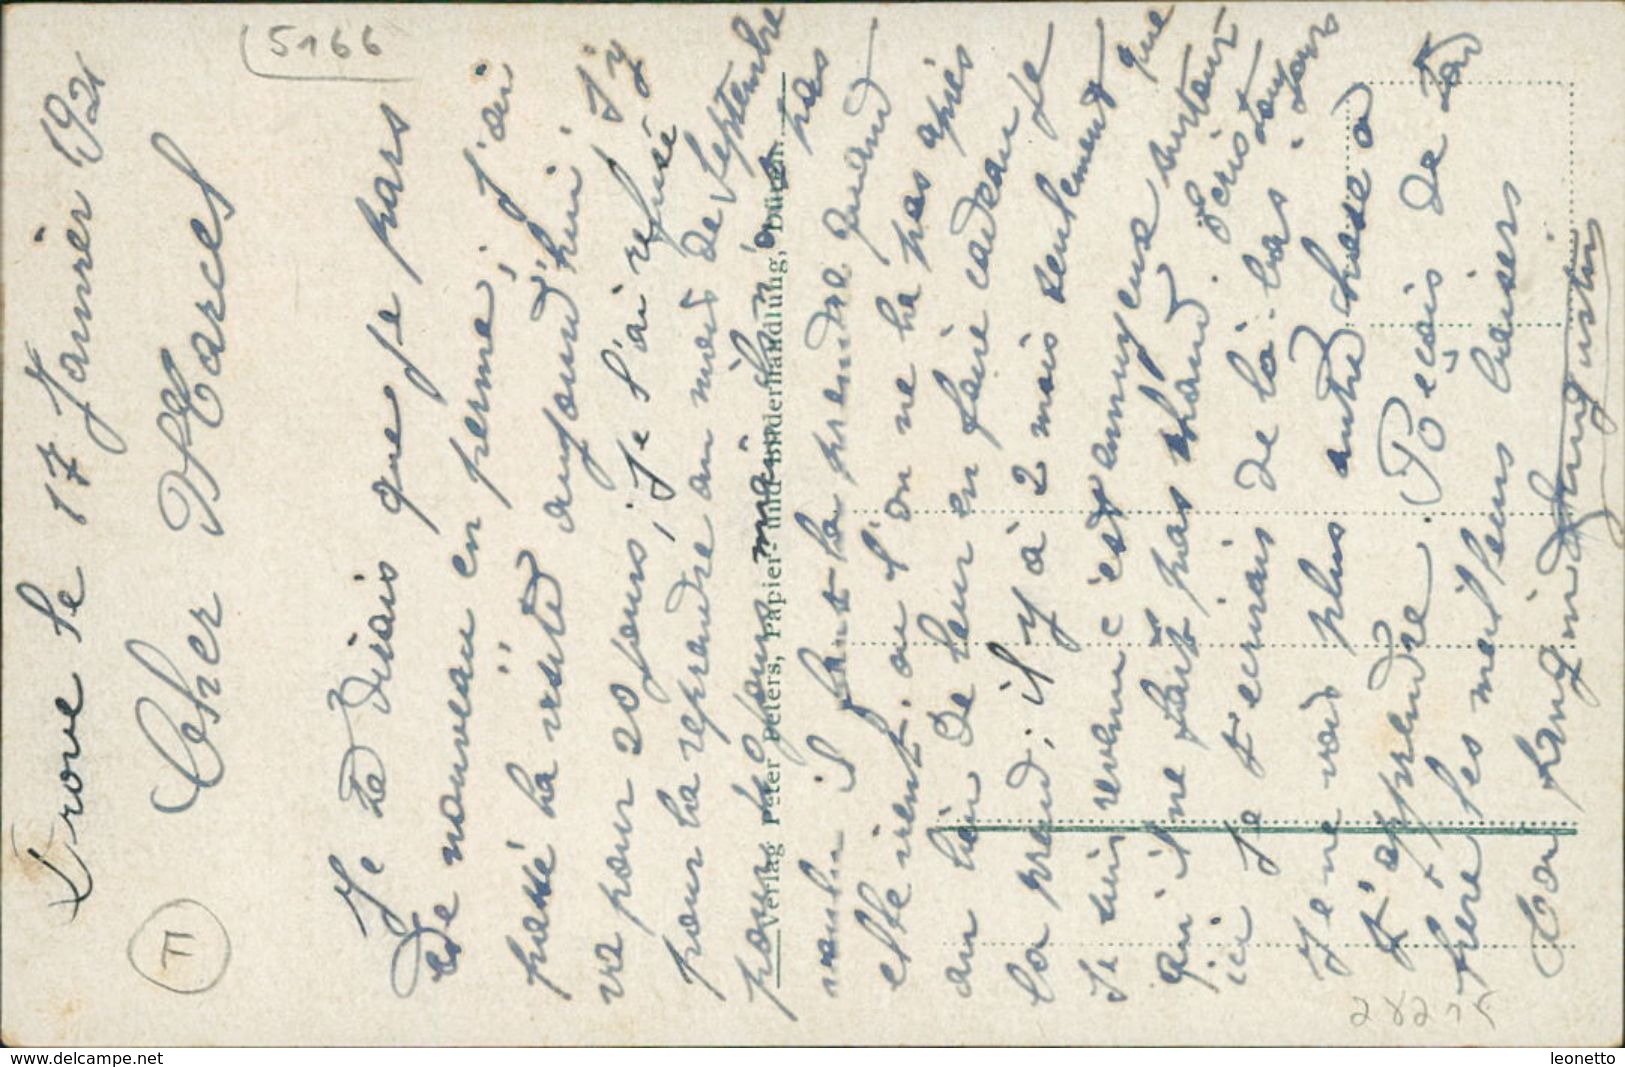 Drove le 17 Janvier 1921
Cher Marcel
Je te disais que je pars
de nouveau en perme, j'ai
passé la visite aujourd'hui. J'y
va pour 20 jours, je l'ai refusé
pour la reprendre au mois de Septembre
pour 40 jours mais l'on a pas
voulu il faut la prendre quand
elle vient. ou l'on ne l'a pas après
au lieu de leur en faire cadeau je
la prend; il y à 2 mois seulement que
je suis revenu c'est ennuyeux surtout
qu'il ne fait pas chaud. Ecris toujours
ici je t'ecrirais de là-bas.
Je ne vois plus autre chose a
t'apprendre. Reçois de ton
frère les meilleurs baisers
Ton frangin
Verlag Peter Peters, Papier- und Bilderhandlung, Düren.
5166
π
www.delcampe.net
leonetto